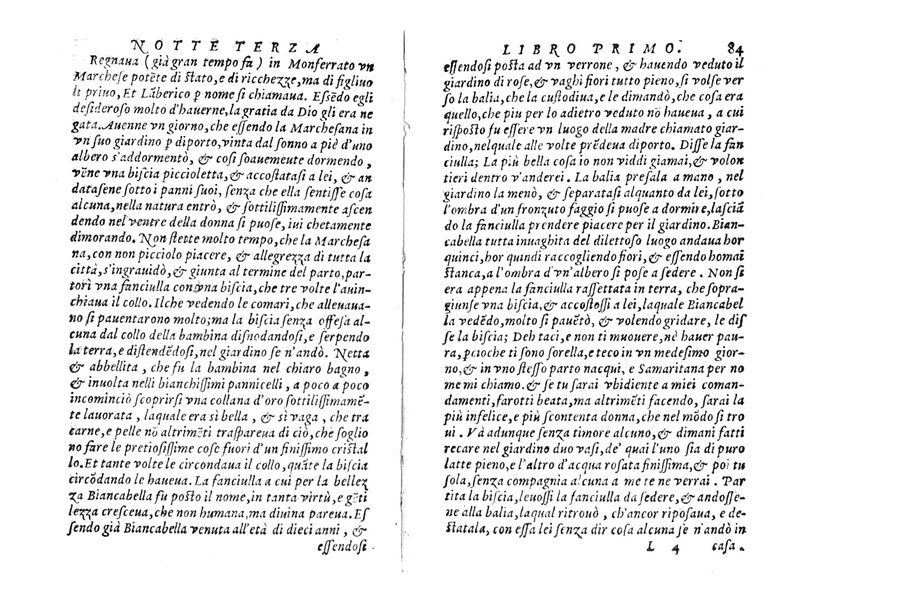 NOTTE TERZA
Regnaua (già gran tempo fa) in Monferrato vn
Marchese potẽte di stato, e di ricchezze, ma di figliuo
li priuo, Et Lãberico ꝑ nome si chiamaua. Essẽdo egli
desideroso molto d'hauerne, la gratia da Dio gli era ne
gata. Auenne vn giorno, che essendo la Marchesana in
vn suo giardino ꝑ diporto, vinta dal sonno a piè d'uno
albero s'addormentò, & cosi soauemente dormendo,
vẽne vna biscia piccioletta, & accostatasi a lei, & an
datasene sotto i panni suoi, senza che ella sentisse cosa
alcuna, nella natura entrò, & sottilissimamente ascen
dendo nel ventre della donna si puose, iui chetamente
dimorando. Non stette molto tempo, che la Marchesa
na, con non picciolo piacere, & allegrezza di tutta la
città, s'ingrauidò, & giunta al termine del parto, par-
torì vna fanciulla con vna biscia, che tre volte l'auin-
chiaua il collo. Ilche vedendo le comari, che alleuaua-
no si pauentarono molto; ma la biscia senza offesa al-
cuna dal collo della bambina disnodandosi, e serpendo
la terra, e distendẽdosi, nel giardino se n'andò. Netta
& abbellita, che fu la bambina nel chiaro bagno,
& inuolta nelli bianchissimi pannicelli, a poco a poco
incominciò scoprirsi vna collana d'oro sottilissimamẽ-
te lauorata, laquale era sì bella, & sì vaga, che tra
carne, e pelle nõ altrimẽti traspareua di ciò, che soglio
no fare le pretiosissime cose fuori d'un finissimo cristal
lo. Et tante volte le circondaua il collo, quãte la biscia
circõdando le haueua. La fanciulla a cui per la bellez
za Biancabella fu posto il nome, in tanta virtù, e gẽti
lezza cresceua, che non humana, ma diuina pareua. Es
sendo già Biancabella venuta all'età di dieci anni, &
essendosi
LIBRO PRIMO. 84
essendosi posta ad vn verrone, & hauendo veduto il
giardino di rose, & vaghi fiori tutto pieno, si volse ver
so la balia, che la custodiua, e le dimandò, che cosa era
quello, che piu per lo adietro veduto nõ haueua, a cui
risposto fu essere vn luogo della madre chiamato giar-
dino, nelquale alle volte prẽdeua diporto. Disse la fan
ciulla; La più bella cosa io non viddi giamai, & volon
tieri dentro v'anderei. La balia presala a mano, nel
giardino la menò, & separatasi alquanto da lei, sotto
l'ombra d'un fronzuto faggio si puose a dormire, lasciã
do la fanciulla prendere piacere per il giardino. Bian-
cabella tutta inuaghita del dilettoso luogo andaua hor
quinci, hor quindi raccogliendo fiori, & essendo homai
stanca, a l'ombra d'vn'albero si pose a sedere. Non si
era appena la fanciulla rassettata in terra, che sopra-
giunse vna biscia, & accostossi a lei, laquale Biancabel
la vedẽdo, molto si pauẽtò, & volendo gridare, le dis
se la biscia; Deh taci, e non ti muouere, nè hauer pau-
ra, percioche ti sono sorella, e teco in vn medesimo gior-
no, & in vno stesso parto nacqui, e Samaritana per no
me mi chiamo. & se tu sarai vbidiente a miei coman-
damenti, farotti beata, ma altrimẽti facendo, sarai la
più infelice, e più scontenta donna, che nel mõdo si tro
ui. Và adunque senza timore alcuno, & dimani fatti
recare nel giardino duo vasi, de' quai l'uno sia di puro
latte pieno, e l'altro d'acqua rosata finissima, & poi tu
sola, senza compagnia alcuna a me te ne verrai. Par
tita la biscia, leuossi la fanciulla da sedere, & andosse-
ne alla balia, laqual ritrouò, ch'ancor riposaua, e de-
statala, con essa lei senza dir cosa alcuna se n'andò in
L 4 casa.